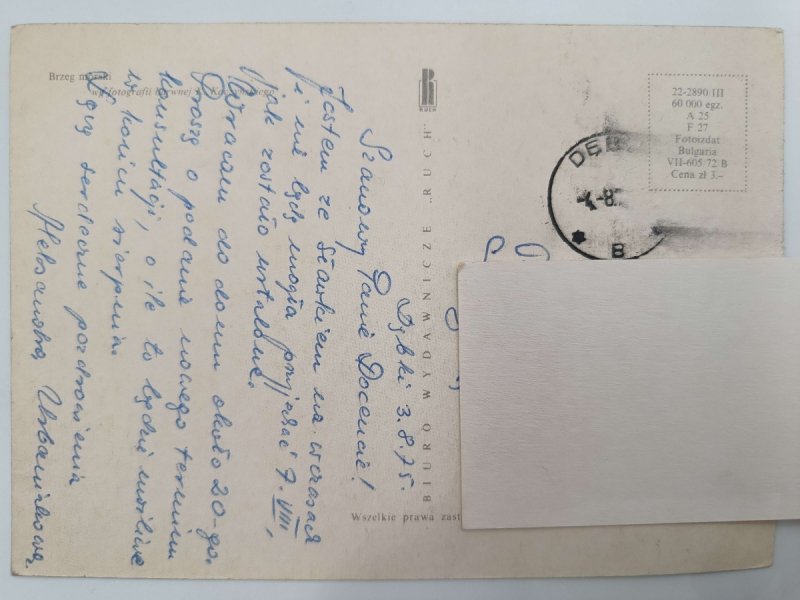 Brzeg morski
wg fotografii barwnej K. Kaczyńskiego
RUCH
BIURO WYDAWNICZE „RUCH"
Wszelkie prawa zast
22-2890 III
60 000 egz.
A 25
F 27
Fotoizdat
Bulgaria
VII-605/72 B
Cena zł 3.–
DĘB
-8.
B
Dębki 3.8.75.
Szanowny Panie Docencie!
Jestem ze Sławkiem na wczasach
i nie będę mogła przyjechać 7.VIII,
jak zostało ustalone.
Wracam do domu około 20-go.
Proszę o podanie nowego terminu
konsultacji, o ile to będzie możliwe
w końcu sierpnia.
Łączę serdeczne pozdrowienia
Aleksandra Urbaniakowa